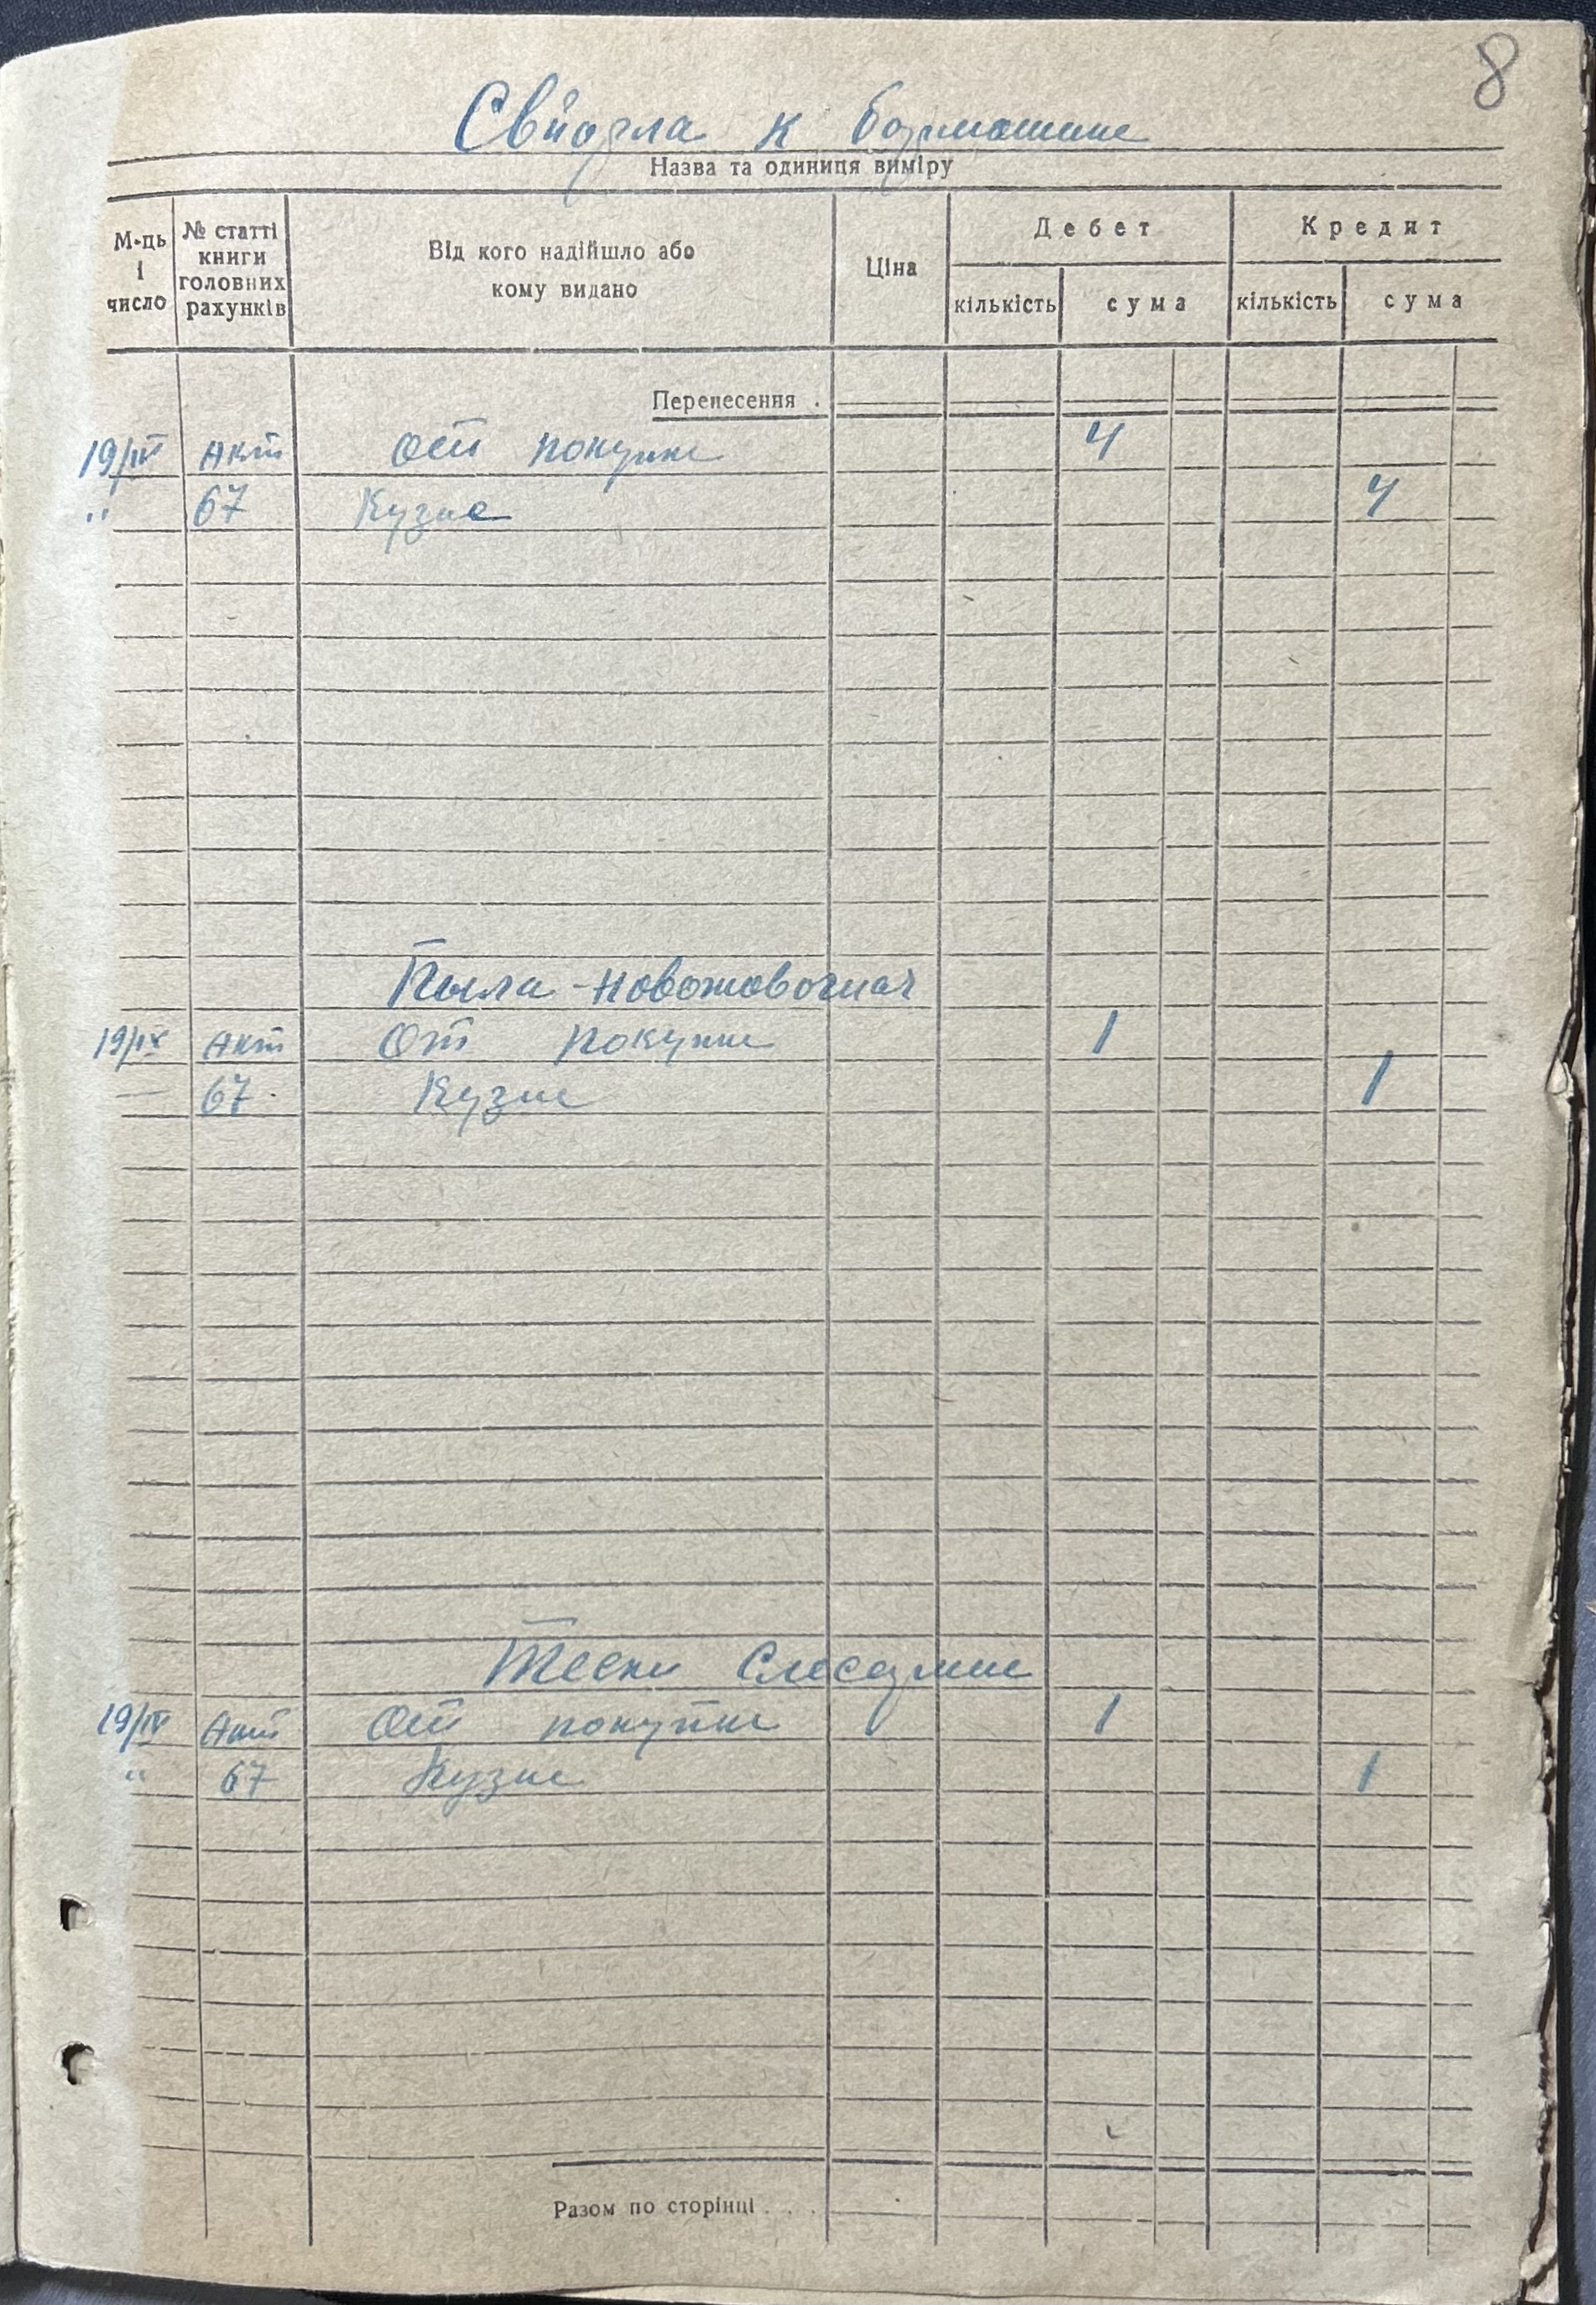 8
Свйодла к бормашине
Назва та одиниця виміру
М-ць і число № статті книги головних рахунків Від кого надійшло або кому видано Ціна Дебет Кредит
кількість сума кількість сума
Перенесення .
19/IV Акт От покупки 4
" 67 Кузне 4
Пыла - ножовочная
19/IV Акт От покупки 1
— 67 Кузне 1
Тески Слесарние
19/IV Акт От покупки 1
" 67 Кузне 1
Разом по сторінці . . .